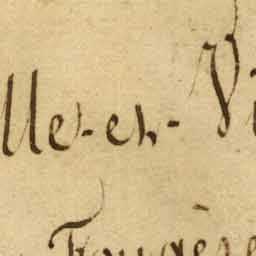 lle-et-Vi
Fougère